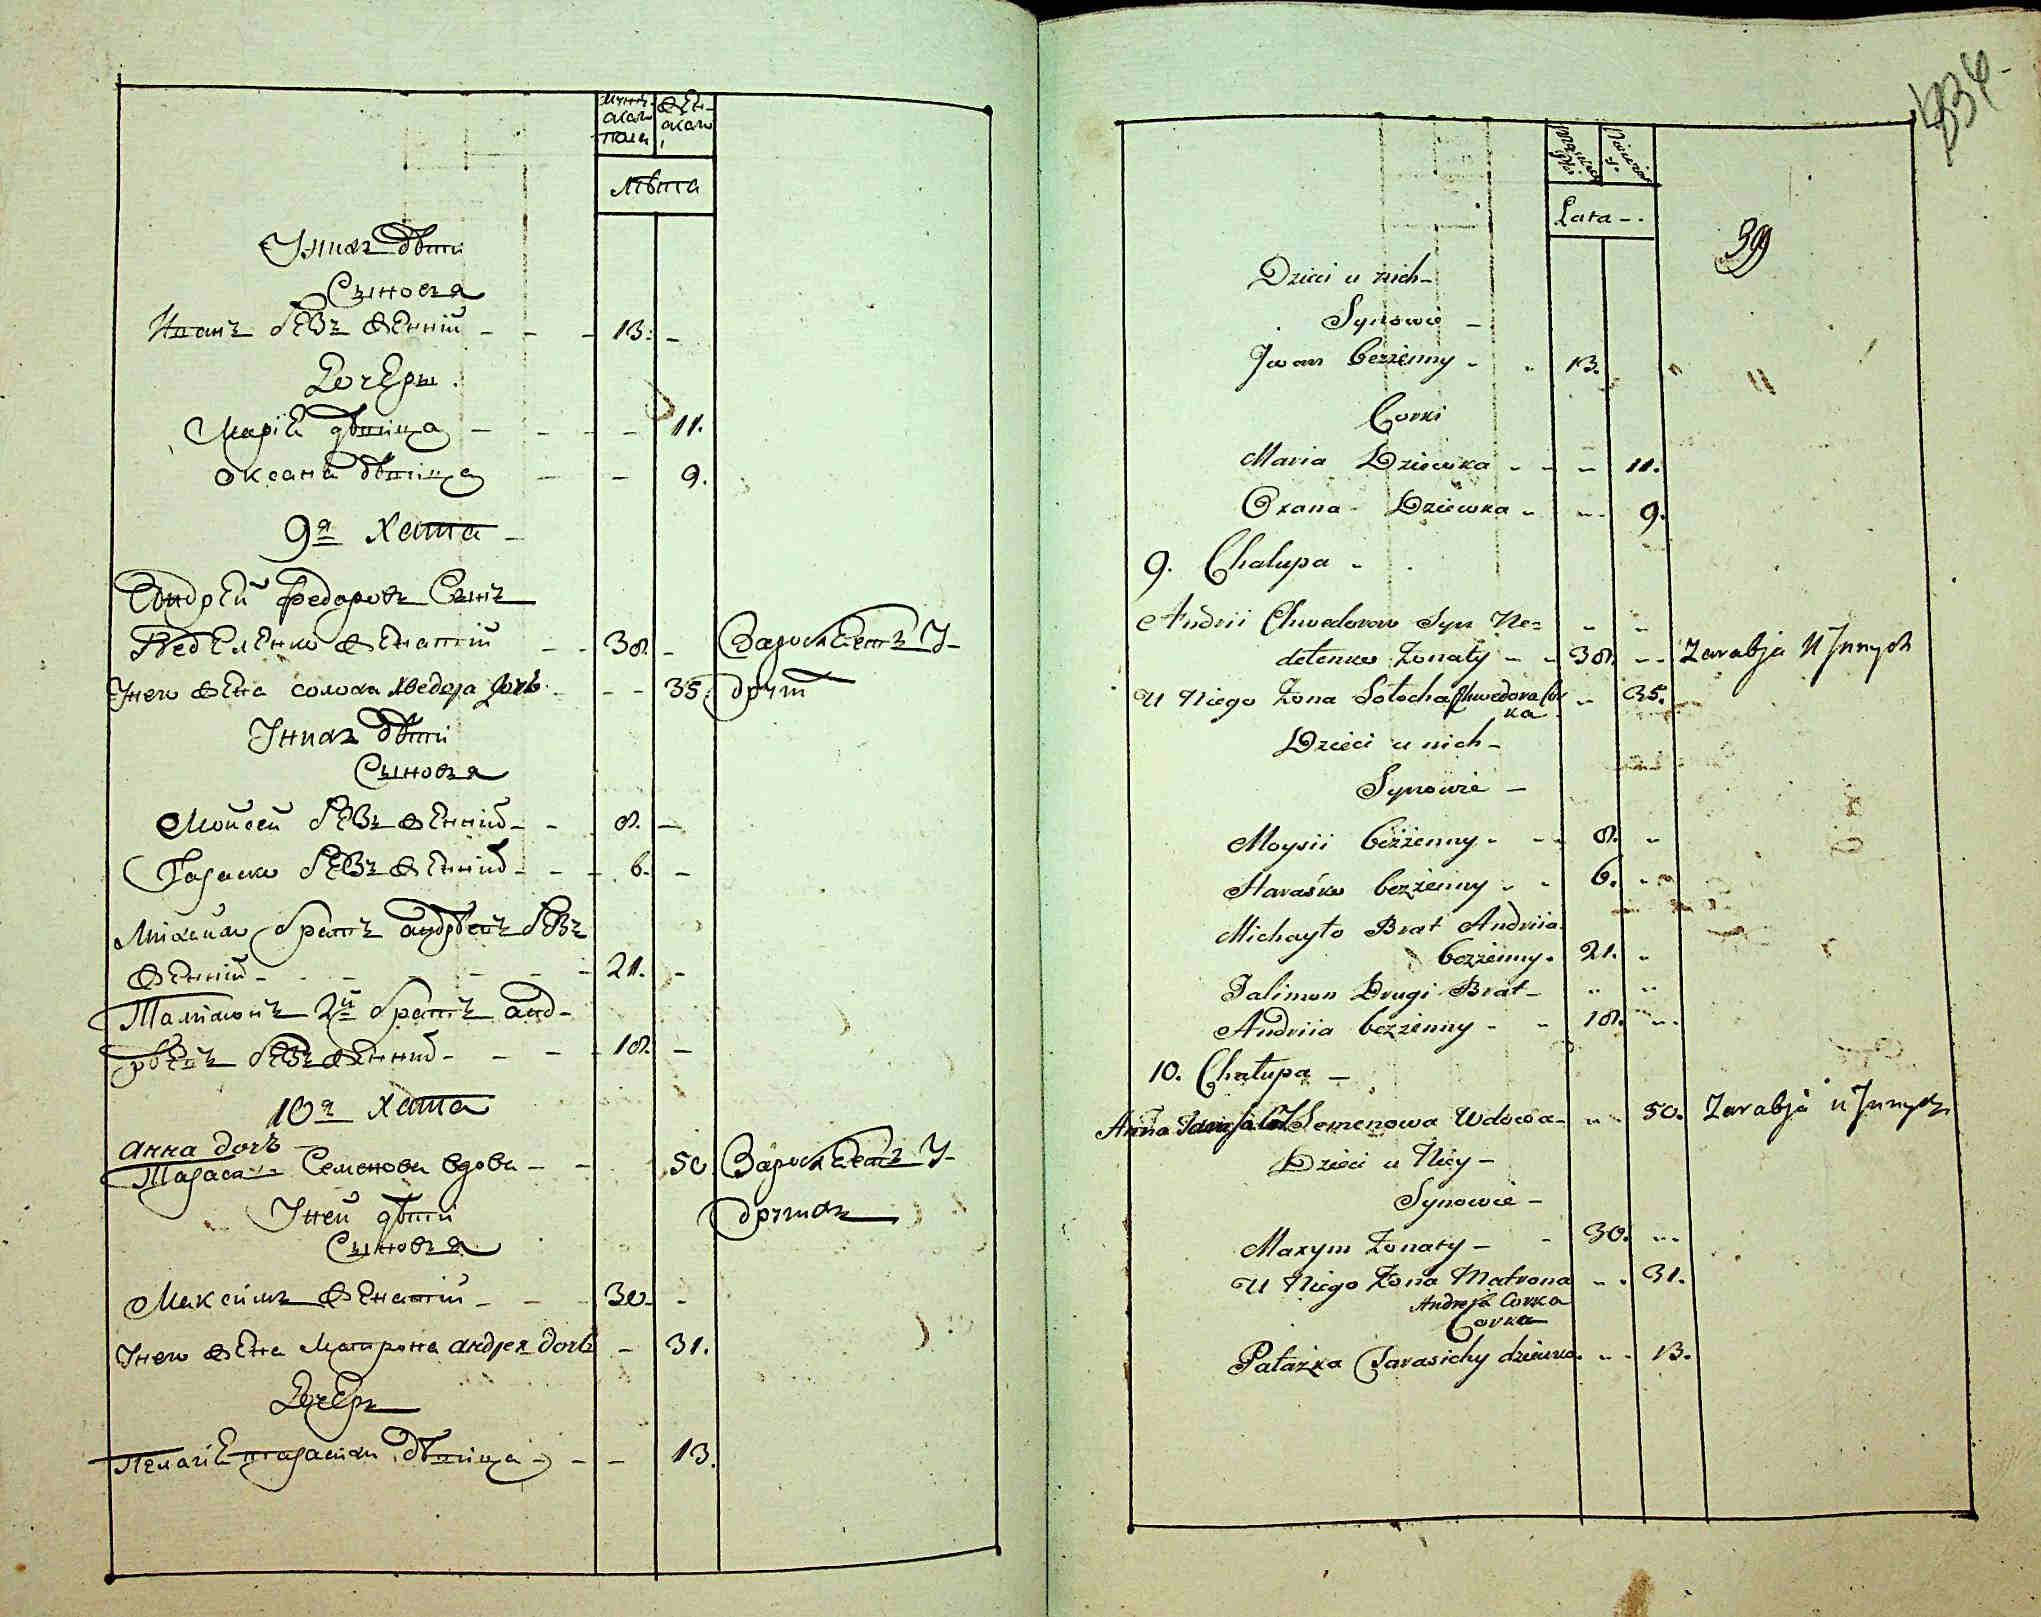 мужескаго пола
женскаго
лѣта
У нихъ дѣти
Сыновья
Иванъ безженній 13.
Дочеры
Марія дѣвица 11.
Оксана дѣвица 9.
9я хата
Андрей Федоровъ Сынъ
Неделенко женатій 38.
Зароблаетъ У
У него жена солоха хведора дочь 35.
друг
У нихъ дѣти
Сыновья
Мойсей безженній 8.
Гараско безженній 6.
Михайло братъ андрѣевъ без
женній 21.
Талимонъ 2й братъ анд
рѣевъ безженній 18.
10я хата
анна дочь
Тараса Семенова вдова 50
Зароблаетъ У
У ней дѣти
другихъ
Сыновья
Максимъ женатій 30.
У него жена Матрона андрея дочь 31.
Дочерь
Пелагія дѣвица 13.
834
39
Lata
Dzieci u nich
Synowie
Jwan bezżenny 13.
Corki
Maria Dziewka 11.
Oxana Dziewka 9.
9. Chałupa
Andrii Chwedorow Syn Ne=
delenko Żonaty 38. Zarabja u Jnnych
U Niego Żona Sołocha Chwedora Cor
ka 35.
Dzieci u nich
Synowie
Moysii bezżenny 8.
Haraśko bezżenny 6.
Michayło Brat Andriia
bezżenny. 21.
Talimon Drugi Brat
Andriia bezżenny 18.
10. Chałupa
Anna Semenowa Wdowa 50. Zarabja u Jnnych
Dzieci u Niey
Synowie
Maxym Żonaty 30.
U Niego Żona Matrona 31.
Andreja Corka
Corka
Pałażka Tarasichy dziewka. 13.